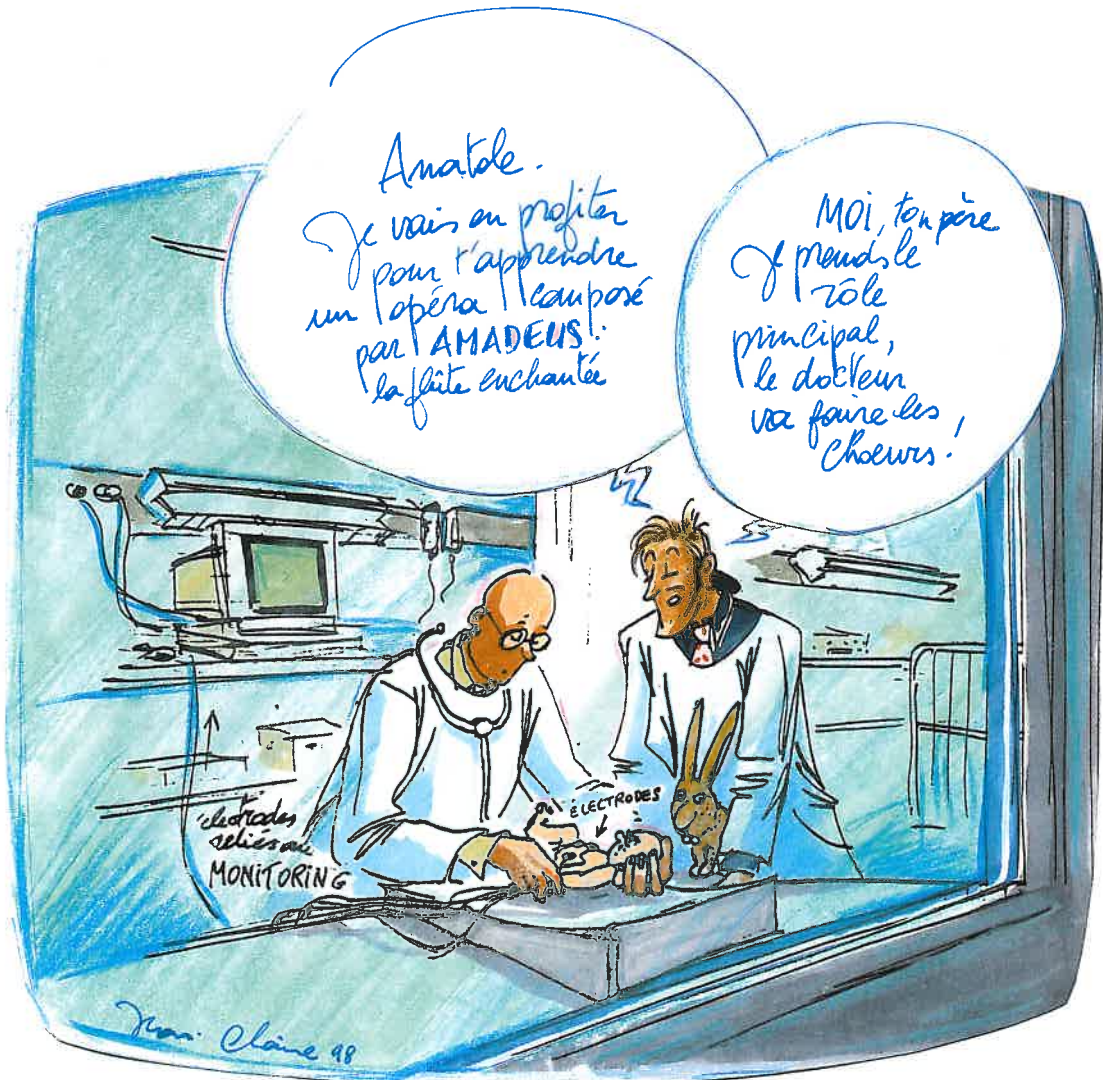 Anatole.
Je vais en profiter
pour t'apprendre
un opéra composé
par AMADEUS :
la flûte enchantée
MOI, ton père
je prends le
rôle
principal,
le docteur
va faire les
choeurs !
ÉLECTRODES
électrodes
reliées au
MONITORING
Claire 98